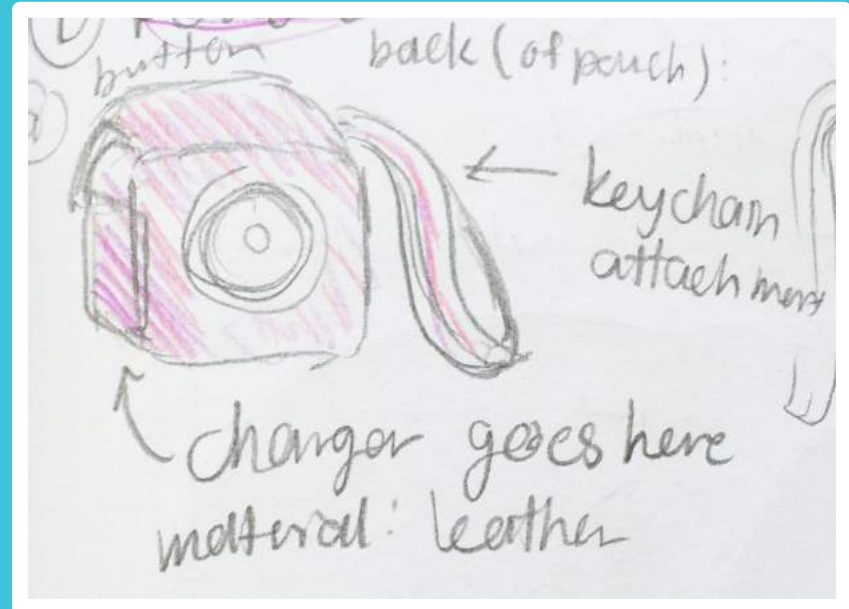 button
back (of pouch):
keychain
attachment
charger goes here
material: leather